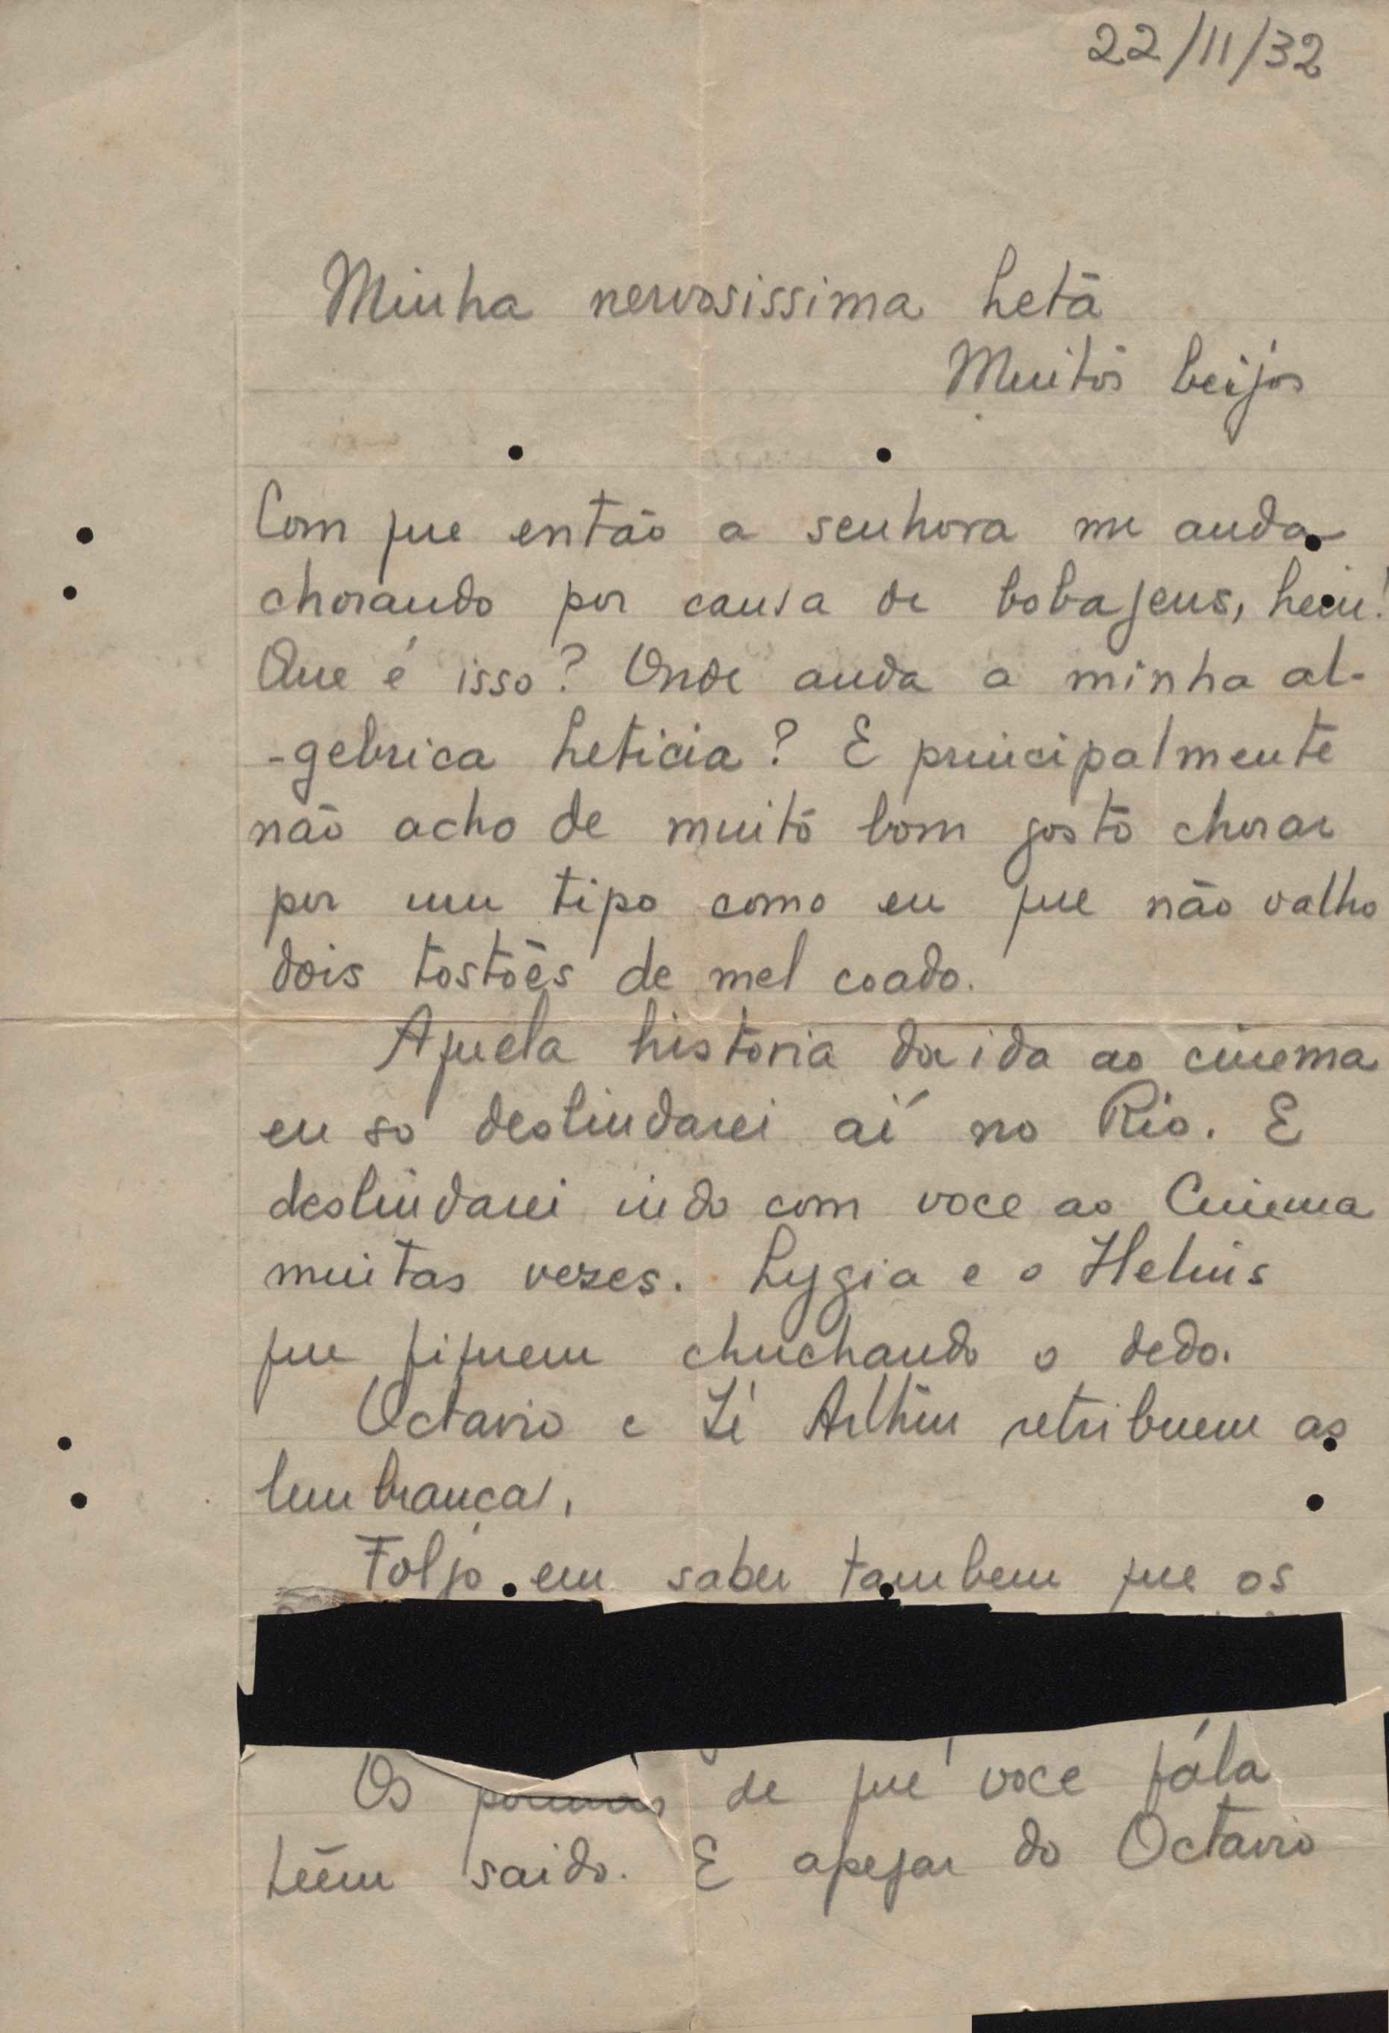 22/11/32
Minha nervosissima Letā
Muitos beijos
Com que então a senhora me anda
chorando por causa de bobagens, hein!
Que é isso? Onde anda a minha al-
-gebrica Leticia? E principalmente
não acho de muito bom gosto chorar
por um tipo como eu que não valho
dois tostões de mel coado.
Aquela historia da ida ao cinema
eu só deslindarei aí no Rio. E
deslindarei indo com voce ao Cinema
muitas vezes. Lygia e o Helius
que fiquem chuchando o dedo.
Octavio e Zé Arthur retribuem as
lembranças.
Folgo em saber tambem que os
Os poemas de que voce fála
têem saido. E apezar do Octavio